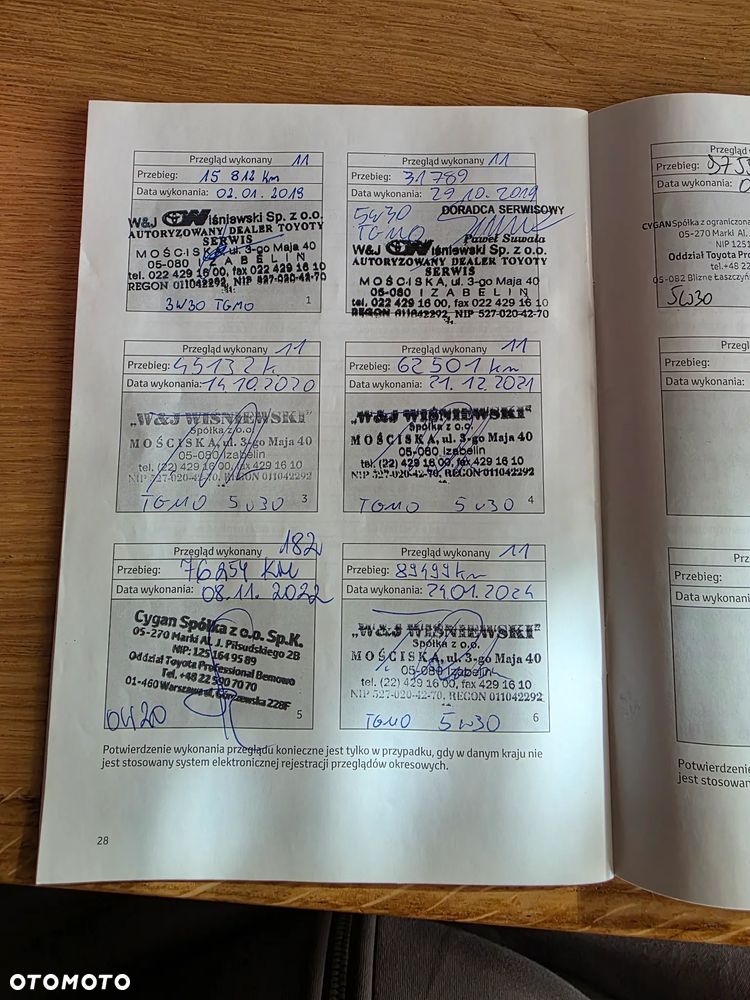 Przegląd wykonany 11
Przebieg: 15 812 km
Data wykonania: 02.01.2019
W&J Wiśniewski Sp. z o.o.
AUTORYZOWANY DEALER TOYOTY
SERWIS
MOŚCISKA, ul. 3-go Maja 40
05-080 IZABELIN
tel. 022 429 16 00, fax 022 429 16 10
REGON 011042292, NIP 527-020-42-70
5W30 TGMO
1
Przegląd wykonany 11
Przebieg: 31 789
Data wykonania: 29.10.2019
5W30
TGMO
DORADCA SERWISOWY
Paweł Suwała
W&J Wiśniewski Sp. z o.o.
AUTORYZOWANY DEALER TOYOTY
SERWIS
MOŚCISKA, ul. 3-go Maja 40
05-080 IZABELIN
tel. 022 429 16 00, fax 022 429 16 10
REGON 011042292, NIP 527-020-42-70
Przegląd wykonany 11
Przebieg: 45132 k
Data wykonania: 14.10.2020
„W&J WIŚNIEWSKI"
Spółka z o.o.
MOŚCISKA, ul. 3-go Maja 40
05-080 Izabelin
tel. (22) 429 16 00, fax 429 16 10
NIP 527-020-42-70, REGON 011042292
TGMO 5W30
3
Przegląd wykonany 11
Przebieg: 62 501 km
Data wykonania: 21.12.2021
„W&J WIŚNIEWSKI"
Spółka z o.o.
MOŚCISKA, ul. 3-go Maja 40
05-080 Izabelin
tel. (22) 429 16 00, fax 429 16 10
NIP 527-020-42-70, REGON 011042292
TGMO 5W30
4
Przegląd wykonany
Przebieg: 76 254 KM
Data wykonania: 08.11.2022
Cygan Spółka z o.o. Sp.K.
05-270 Marki Al. J. Piłsudskiego 2B
NIP: 125 164 95 89
Oddział Toyota Professional Bemowo
Tel. +48 22 590 70 70
01-460 Warszawa ul. Górczewska 228F
0W20
5
Przegląd wykonany 11
Przebieg: 89499 km
Data wykonania: 24.01.2024
„W&J WIŚNIEWSKI"
Spółka z o.o.
MOŚCISKA, ul. 3-go Maja 40
05-080 Izabelin
tel. (22) 429 16 00, fax 429 16 10
NIP 527-020-42-70, REGON 011042292
TGMO 5W30
6
Potwierdzenie wykonania przeglądu konieczne jest tylko w przypadku, gdy w danym kraju nie
jest stosowany system elektronicznej rejestracji przeglądów okresowych.
28
Przegląd
Przebieg:
Data wykonania:
CYGAN Spółka z ograniczoną
05-270 Marki Al.
NIP 125
Oddział Toyota Pro
tel.+48 22
05-082 Blizne Łaszczyń
5W30
Przebieg:
Data wykonania:
Przebieg:
Data wykonania:
Potwierdzenie
jest stosowan
OTOMOTO